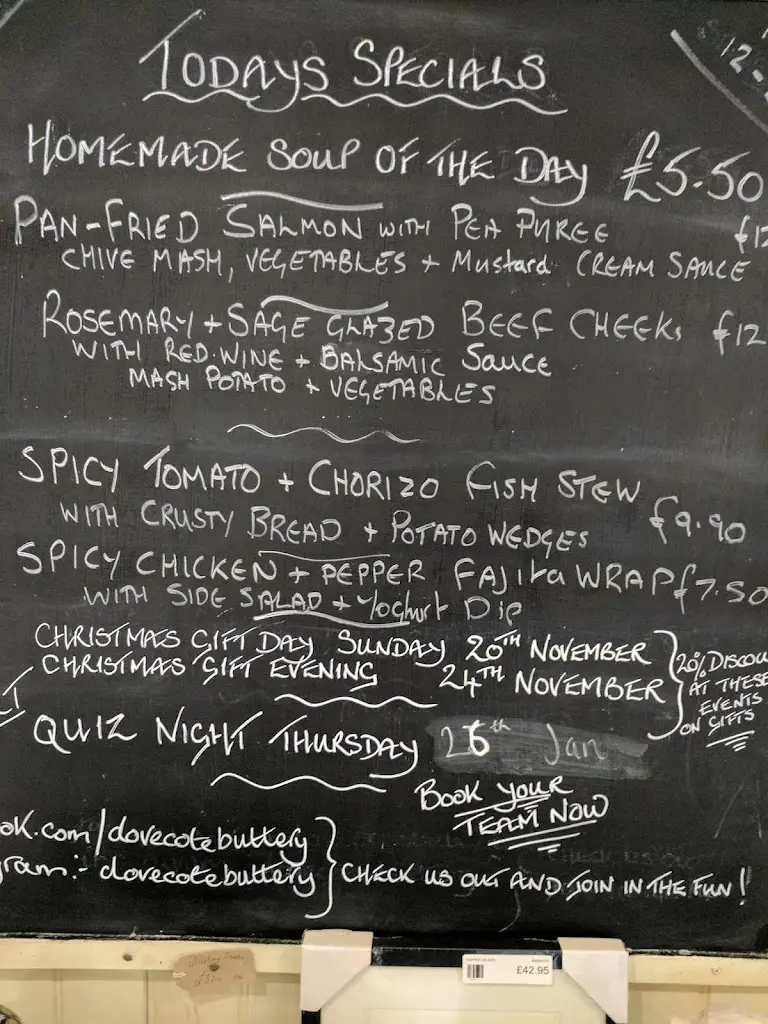 TODAYS SPECIALS
12-
HOMEMADE SOUP OF THE DAY £5.50
PAN-FRIED SALMON WITH PEA PUREE £12
CHIVE MASH, VEGETABLES + Mustard CREAM SAUCE
ROSEMARY + SAGE GLAZED BEEF CHEEKS £12
WITH RED WINE + BALSAMIC SAUCE
MASH POTATO + VEGETABLES
SPICY TOMATO + CHORIZO FISH STEW
WITH CRUSTY BREAD + POTATO WEDGES £9.90
SPICY CHICKEN + PEPPER FAJITA WRAP £7.50
WITH SIDE SALAD + Yoghurt Dip
CHRISTMAS GIFT DAY SUNDAY 20TH NOVEMBER
CHRISTMAS GIFT EVENING 24TH NOVEMBER
20% DISCOU
AT THESE
EVENTS
ON GIFTS
QUIZ NIGHT THURSDAY 26th Jan
BOOK YOUR
TEAM NOW
ok.com/dovecotebuttery
gram:- dovecotebuttery
CHECK US OUT AND JOIN IN THE FUN!
£42.95